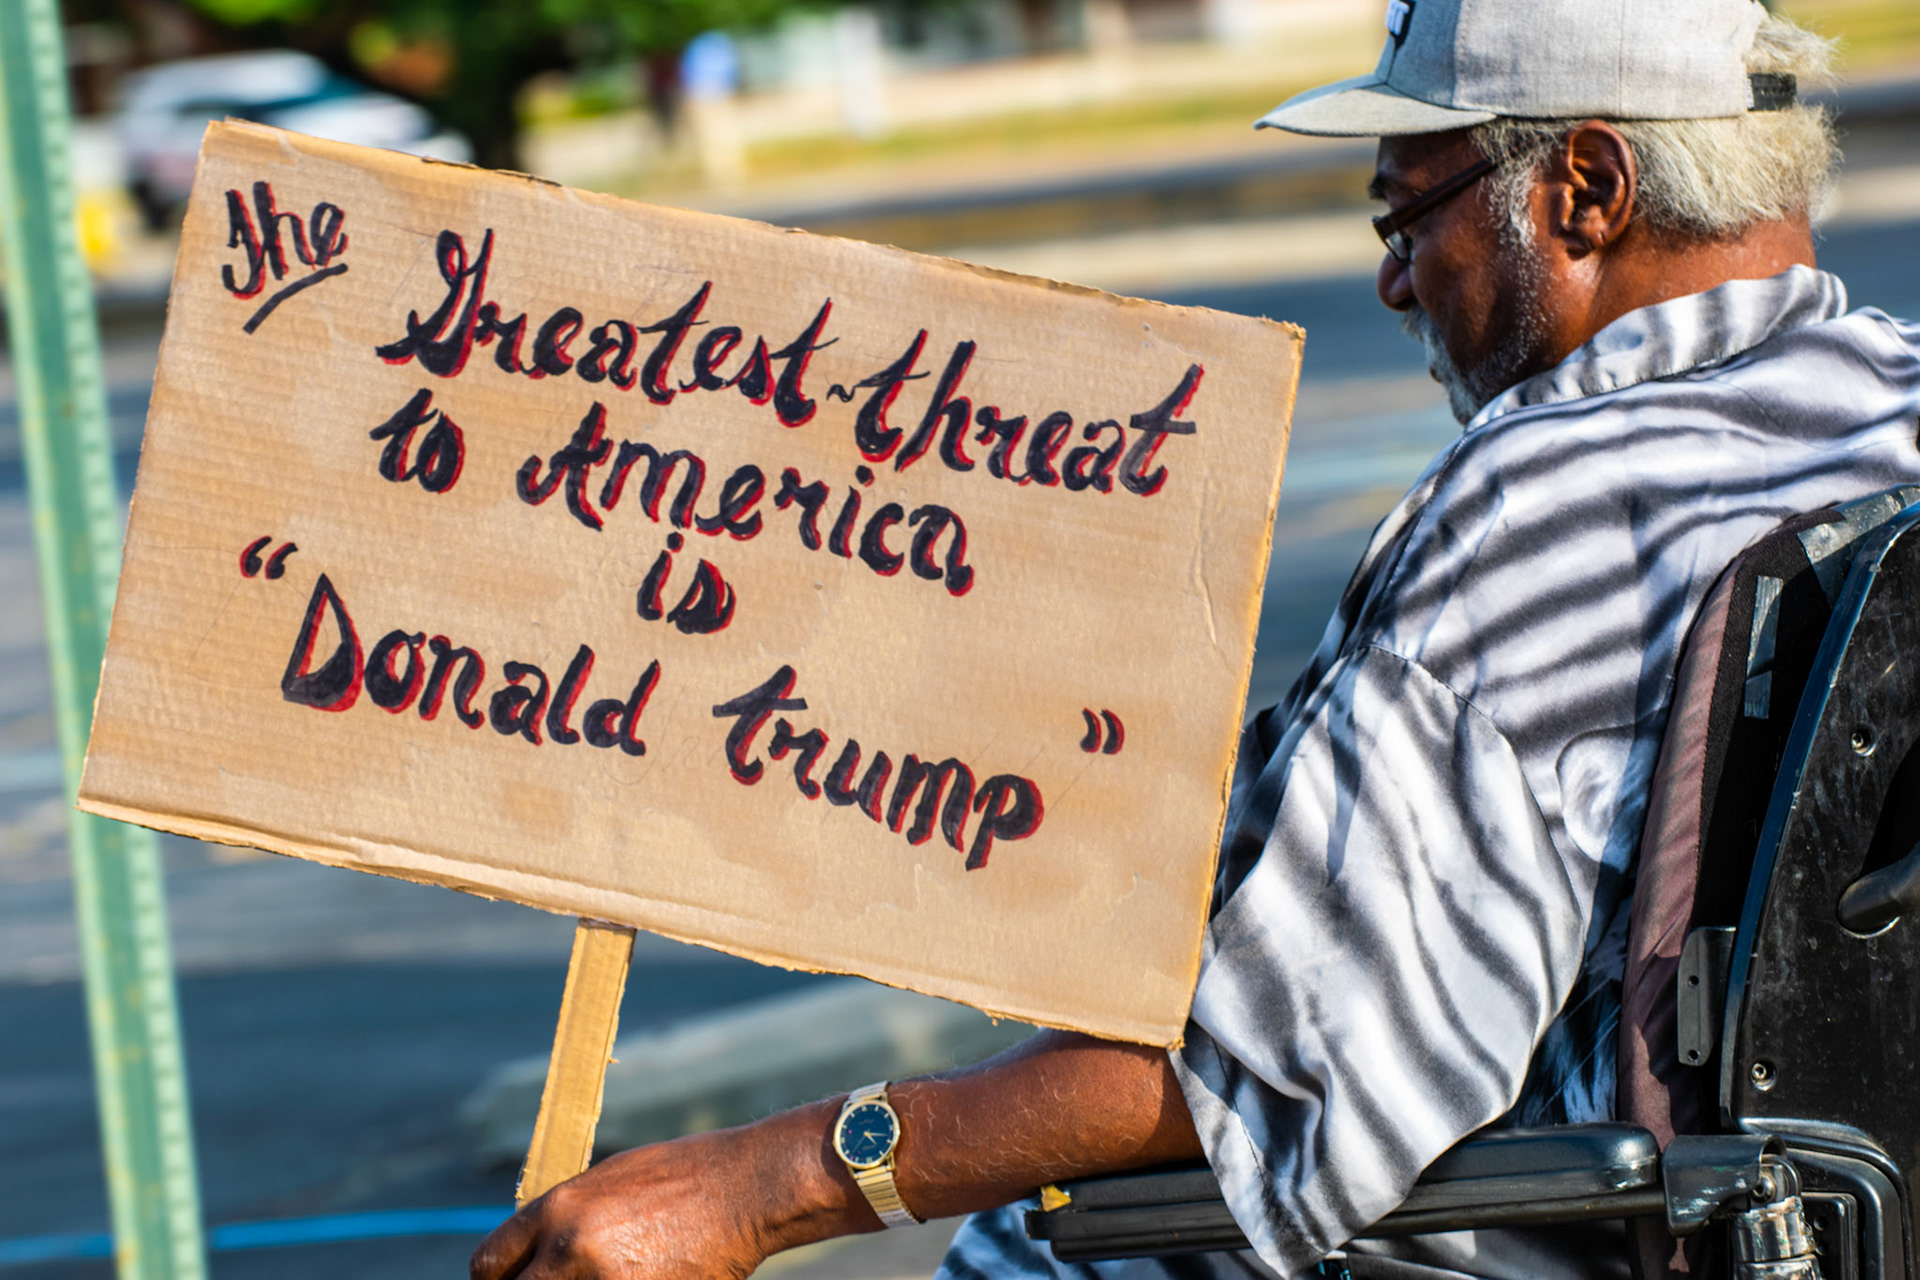 The
Greatest threat
to America
is
"Donald trump"